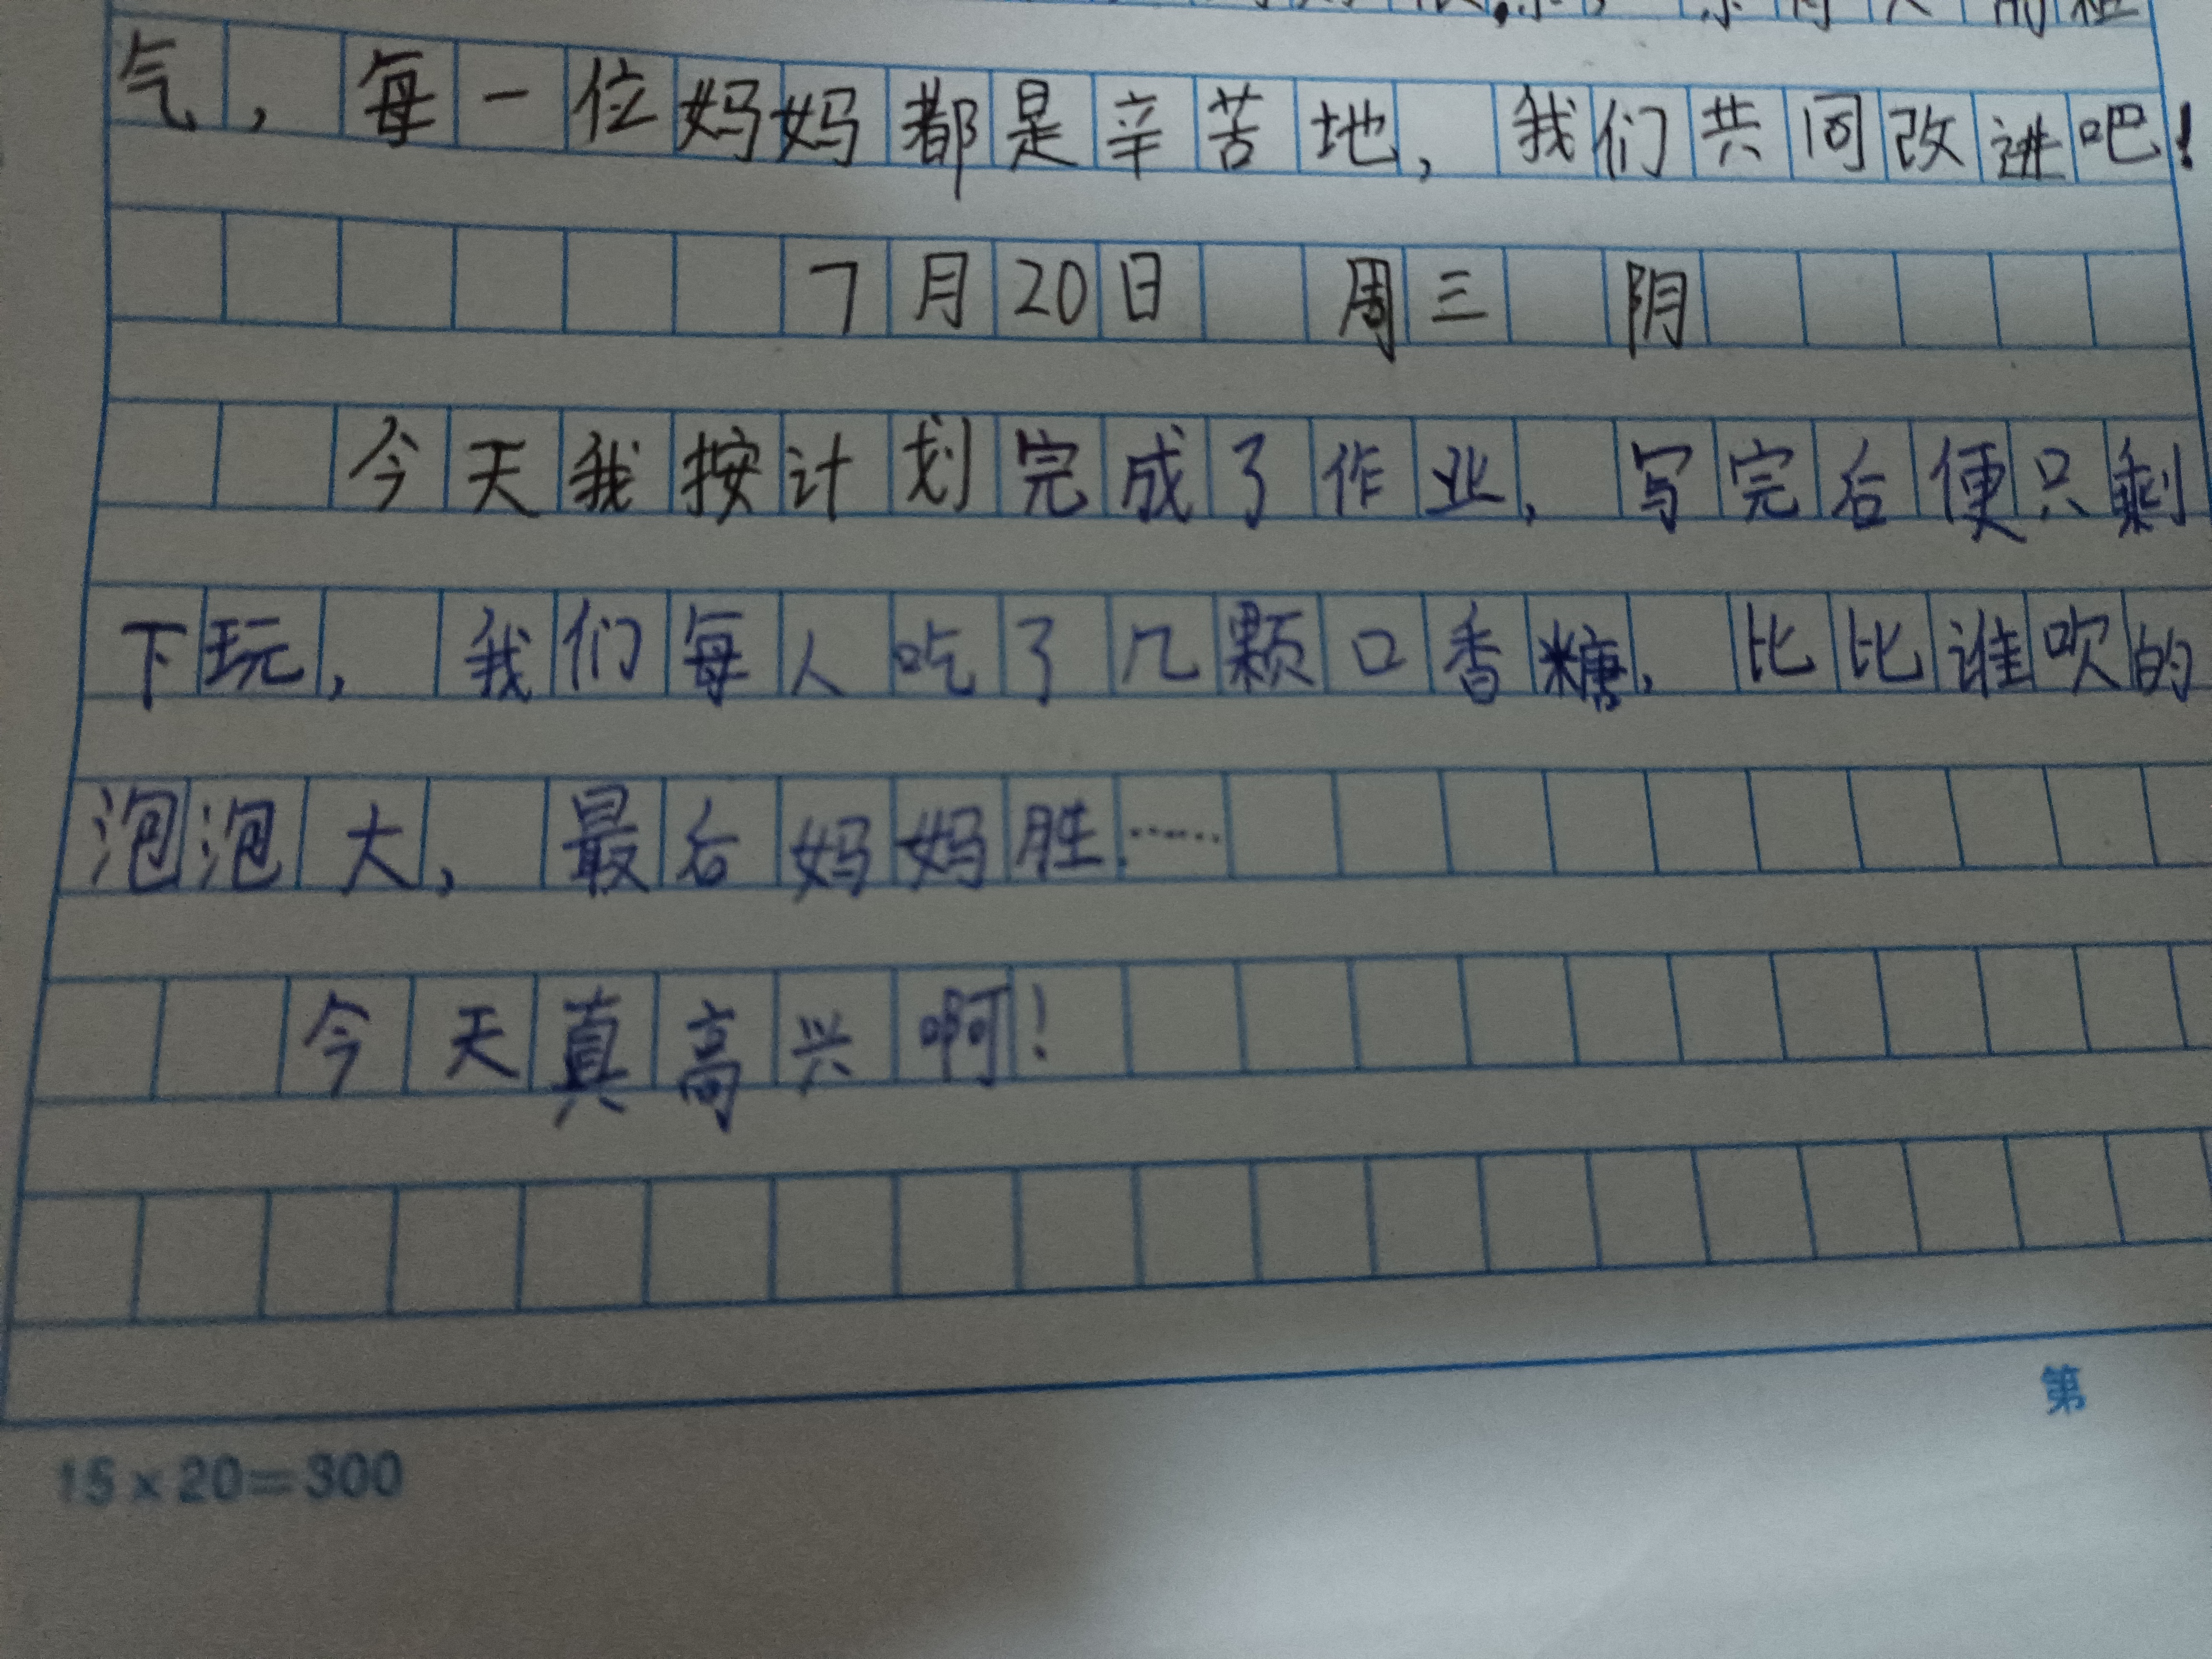 气，每一位妈妈都是辛苦地，我们共同改进吧！
7月20日 周三 阴
今天我按计划完成了作业，写完后便只剩
下玩，我们每人吃了几颗口香糖，比比谁吹的
泡泡大，最后妈妈胜……
今天真高兴啊！
第
15×20=300